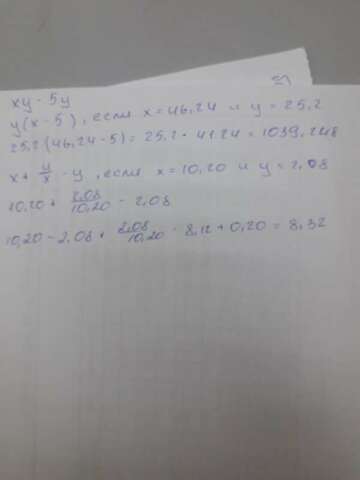 xy - 5y
y(x-5), если x=46,24 и y=25,2
25,2(46,24-5)=25,2·41,24=1039,248
x+y/x-y, если x=10,20 и y=2,08
10,20+2,08/10,20-2,08
10,20-2,08+2,08/10,20=8,12+0,20=8,32